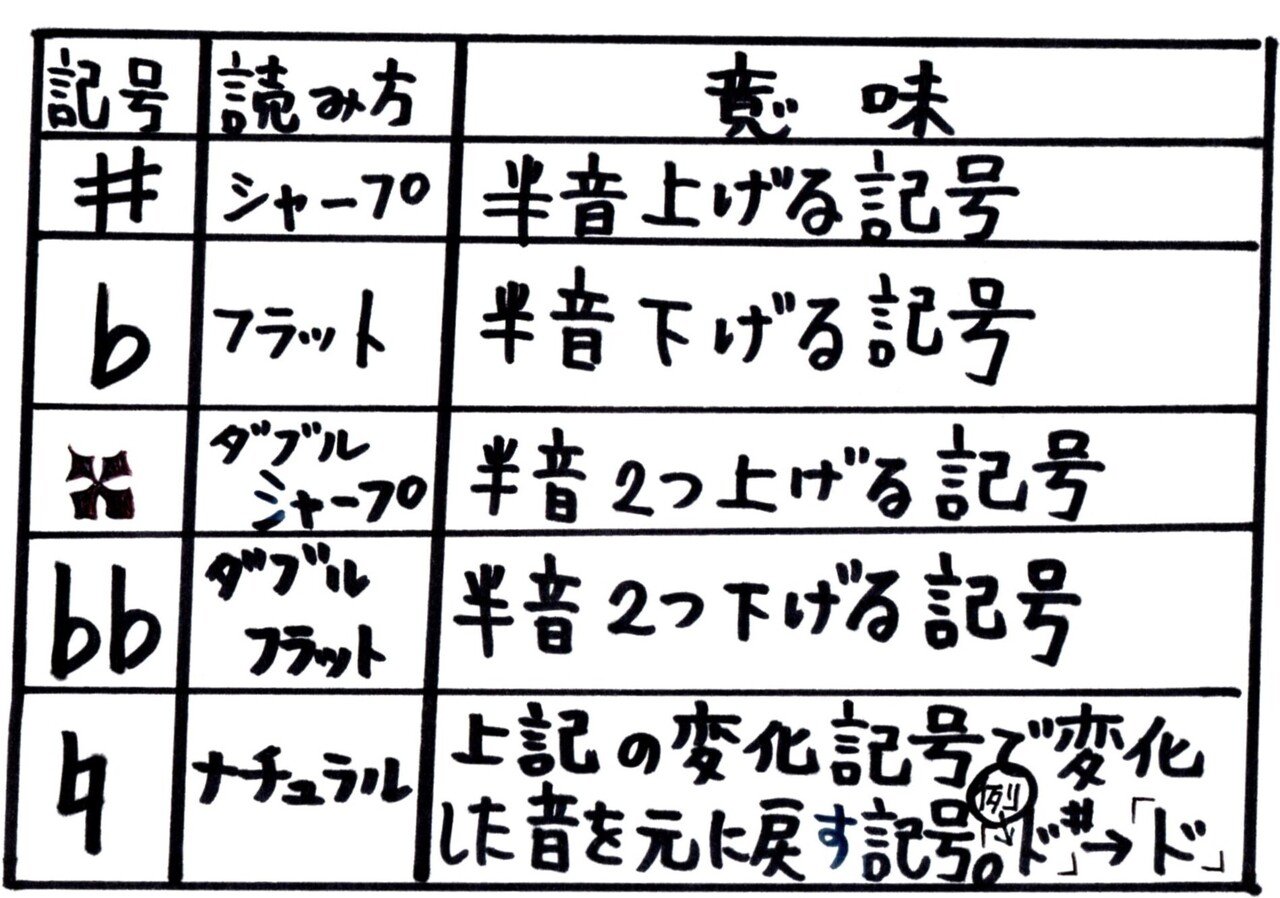 記号 読み方 意味
♯ シャープ 半音上げる記号
♭ フラット 半音下げる記号
𝄪 ダブル
シャープ 半音2つ上げる記号
♭♭ ダブル
フラット 半音2つ下げる記号
♮ ナチュラル 上記の変化記号で変化
した音を元に戻す記号。例「ド♯」→「ド」